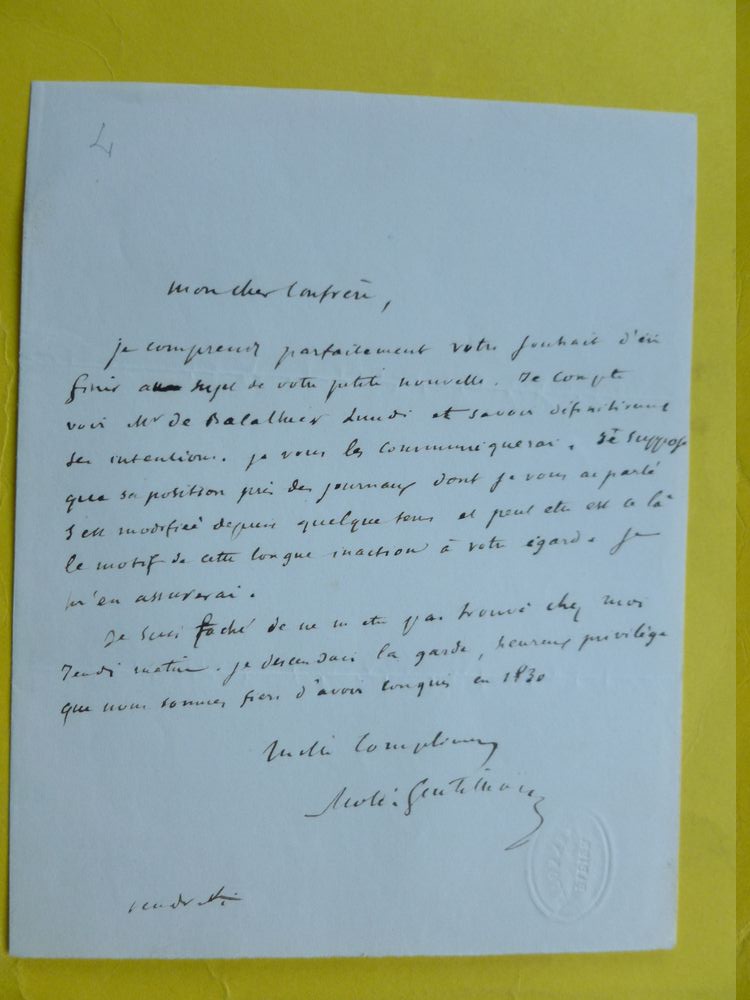 4
mon cher Confrère,
je comprends parfaitement votre souhait d'en
finir au sujet de votre petite nouvelle. Je compte
voir Mr de Balathier Lundi et savoir définitivement
ses intentions. je vous les communiquerai. Je suppose
que sa position près des journaux dont je vous ai parlé
s'est modifiée depuis quelque tems et peut etre est ce là
le motif de cette longue inaction à votre égard. Je
m'en assurerai.
Je suis faché de ne m'etre pas trouvé chez moi
Jeudi matin. je descendais la garde, heureux privilège
que nous sommes fiers d'avoir conquis en 1830
Mille Complimens
Molé-Gentilhomme
vendredi